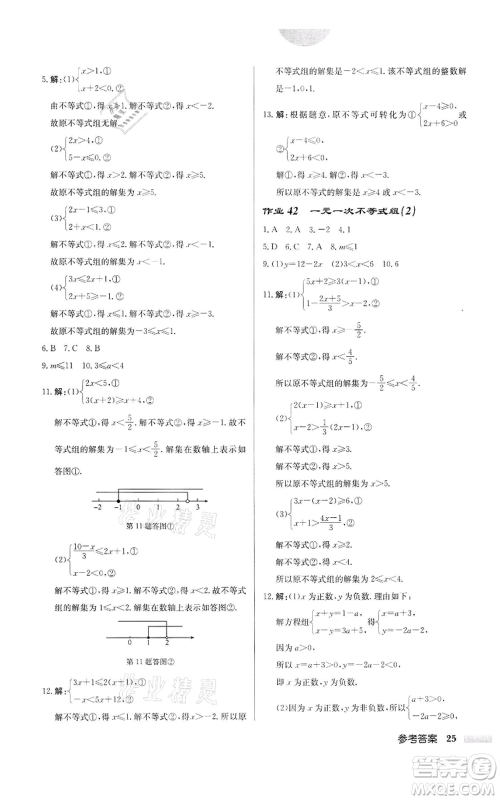 5. 解:(1){x>1,①
x<-2,②
由不等式①,得 x>1,解不等式②,得 x<-2.
故原不等式组无解.
(2){2x>4,①
x-5≤0.②
解不等式①,得 x>2,解不等式②,得 x≤5.
故原不等式组的解集为 2<x≤5.
(3){2x-4≤6,①
3+x>-1.②
解不等式①,得 x≤5,解不等式②,得 x>-4.
故原不等式组的解集为-4<x≤5.
(4){2x<0,①
x+5≥2.②
解不等式①,得 x<0,解不等式②,得 x≥-3.
故原不等式组的解集为-3≤x<0.
6. B 7. C 8. B
9. m≤11 10. 3≤a<4
11. 解:(1){2x<5,①
3(x+2)≥x+4,②
解不等式①,得 x<5/2.解不等式②,得 x≥-1.故不
等式组的解集为-1≤x<5/2.解集在数轴上表示如
答图①.
-2 -1 0 1 2 3
第 11 题答图①
(2){(10-x)/3≤2x+1,①
x-2<0.②
解不等式①,得 x≥1,解不等式②,得 x<2.故不等
式组的解集为 1≤x<2.解集在数轴上表示如答图②.
0 1 2
第 11 题答图②
12. 解:{3x+1≤2(x+1),①
-x<5x+12,②
解不等式①,得 x≤1.解不等式②,得 x>-2.故原
不等式组的解集为-2<x≤1.该不等式组的整数解
是-1,0,1.
13. 解:根据题意,原不等式可转化为①{x-4≥0,
2x+6>0
或②{x-4≤0,
2x+6<0.
解不等式组①,得 x≥4,解不等式组②,得 x<-3.
所以原不等式的解集为 x≥4 或 x<-3.
作业 42 一元一次不等式组(2)
1. A 2. A 3. -2 4. 1
5. D 6. C 7. A 8. m≤1
9. (1)y=12-2x (2)3<x<6 10. 6
11. 解:(1){5x+2≥3x,①
(2x+5)/3>x-2,②
解不等式①,得
解不等式②,得 x<
所以原不等式组的解集为
(2){2(x-1)≥x+1,①
x-2>(2x-1)/3,②
解不等式①,得 x≥3.
解不等式②,得 x>5.
所以原不等式组的解集为 x>5.
(3){x-3(x-2)≤8,①
x+1>(4x-1)/3.②
解不等式①,得 x≥-1.
解不等式②,得 x<4.
所以原不等式组的解集为
12. 解:(1)x 为正数,y 为负数.理由如下:
解方程组{x+y=1-a,得{x=a+3,
x-y=3a+5,得 y=-2a-2.
因为 a>0,
所以 a+3>0,-2a-2<0,
即 x 为正数,y 为负数.
(2)因为 x 为正数,y 为非负数,所以{a+3>0,
-2a-2≥0,
参考答案 25
作业精灵
作业精灵
答案圈
MXQE.COM